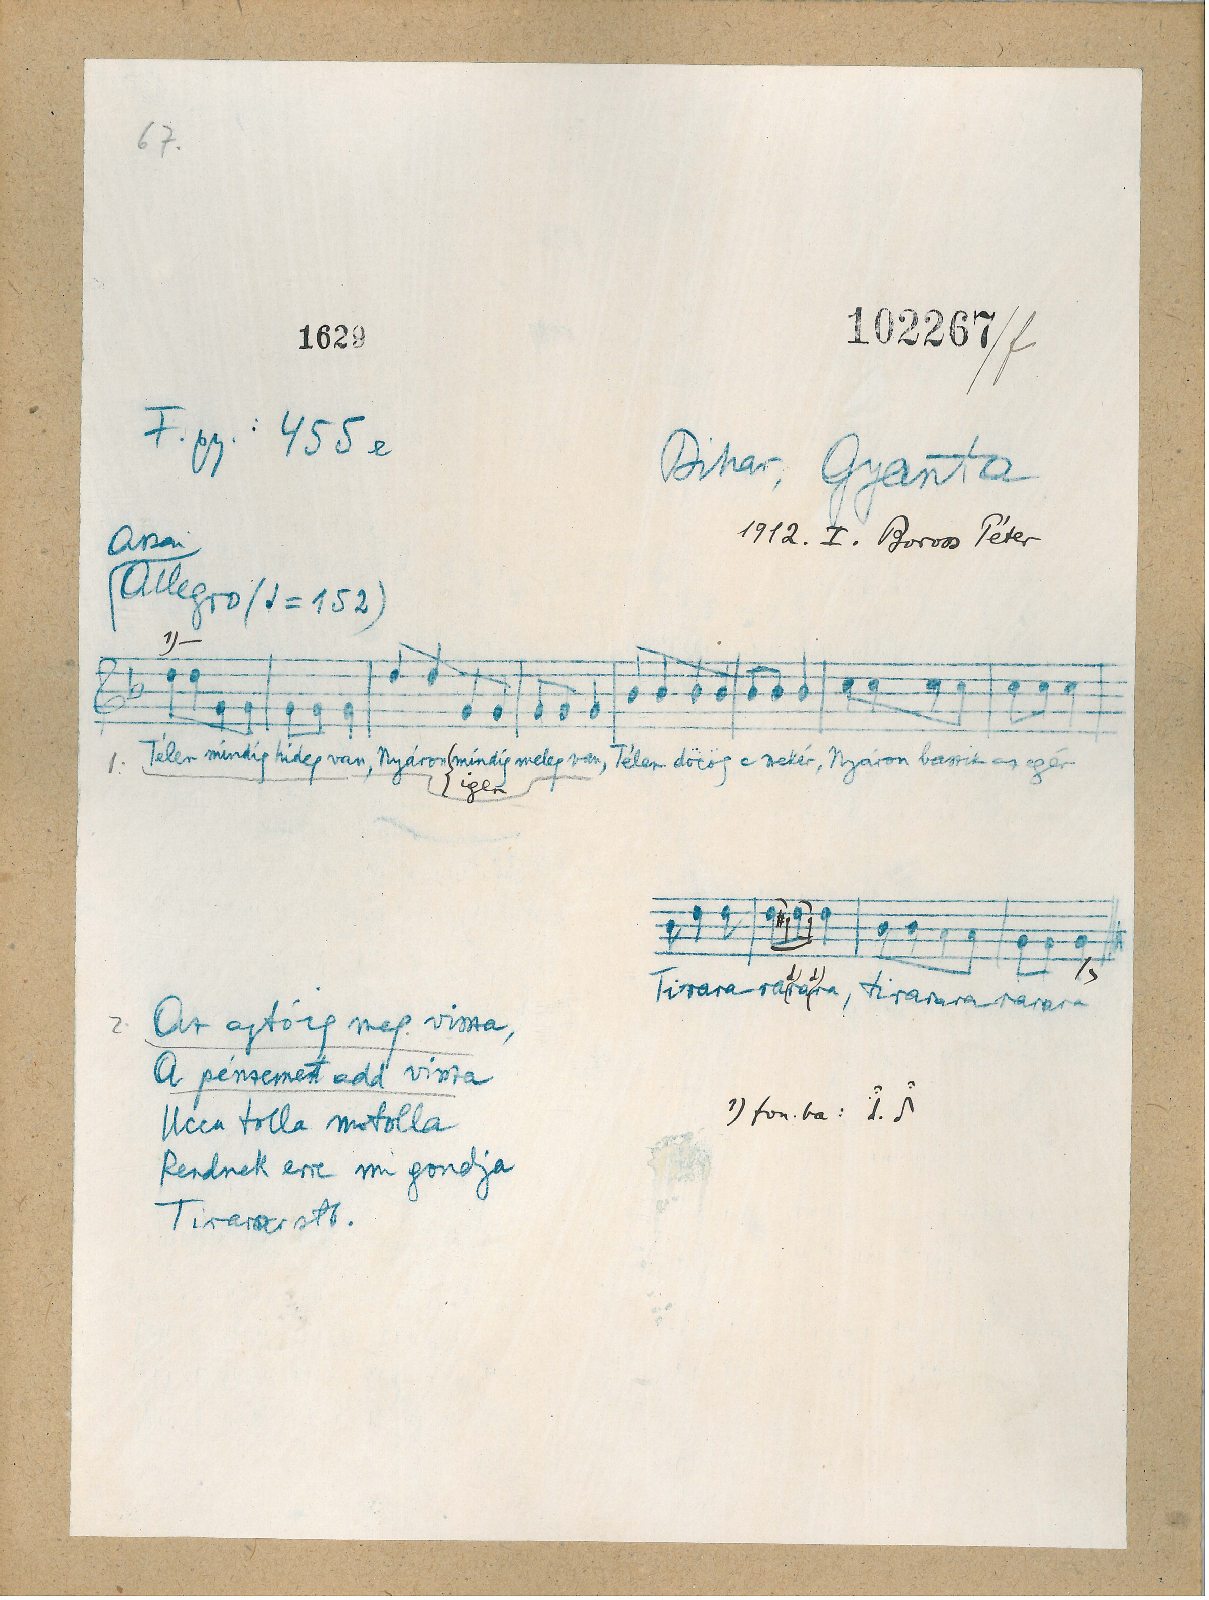 67.
1629
102267/f
F. gy.: 455 e
Bihar, Gyanta
1912. I. Boros Péter
Assai
Allegro (♩=152)
1)
1. Télen mindig hideg van, Nyáron mindig meleg van, Télen döcög a szekér, Nyáron baszik az egér
igen
Tirara rarara, tirarara rarara
2. Az ajtóig meg vissza,
A pénzemet add vissza
Ucca tolla motolla
Rendnek erre mi gondja
Tirara stb.
1) fon.ba: